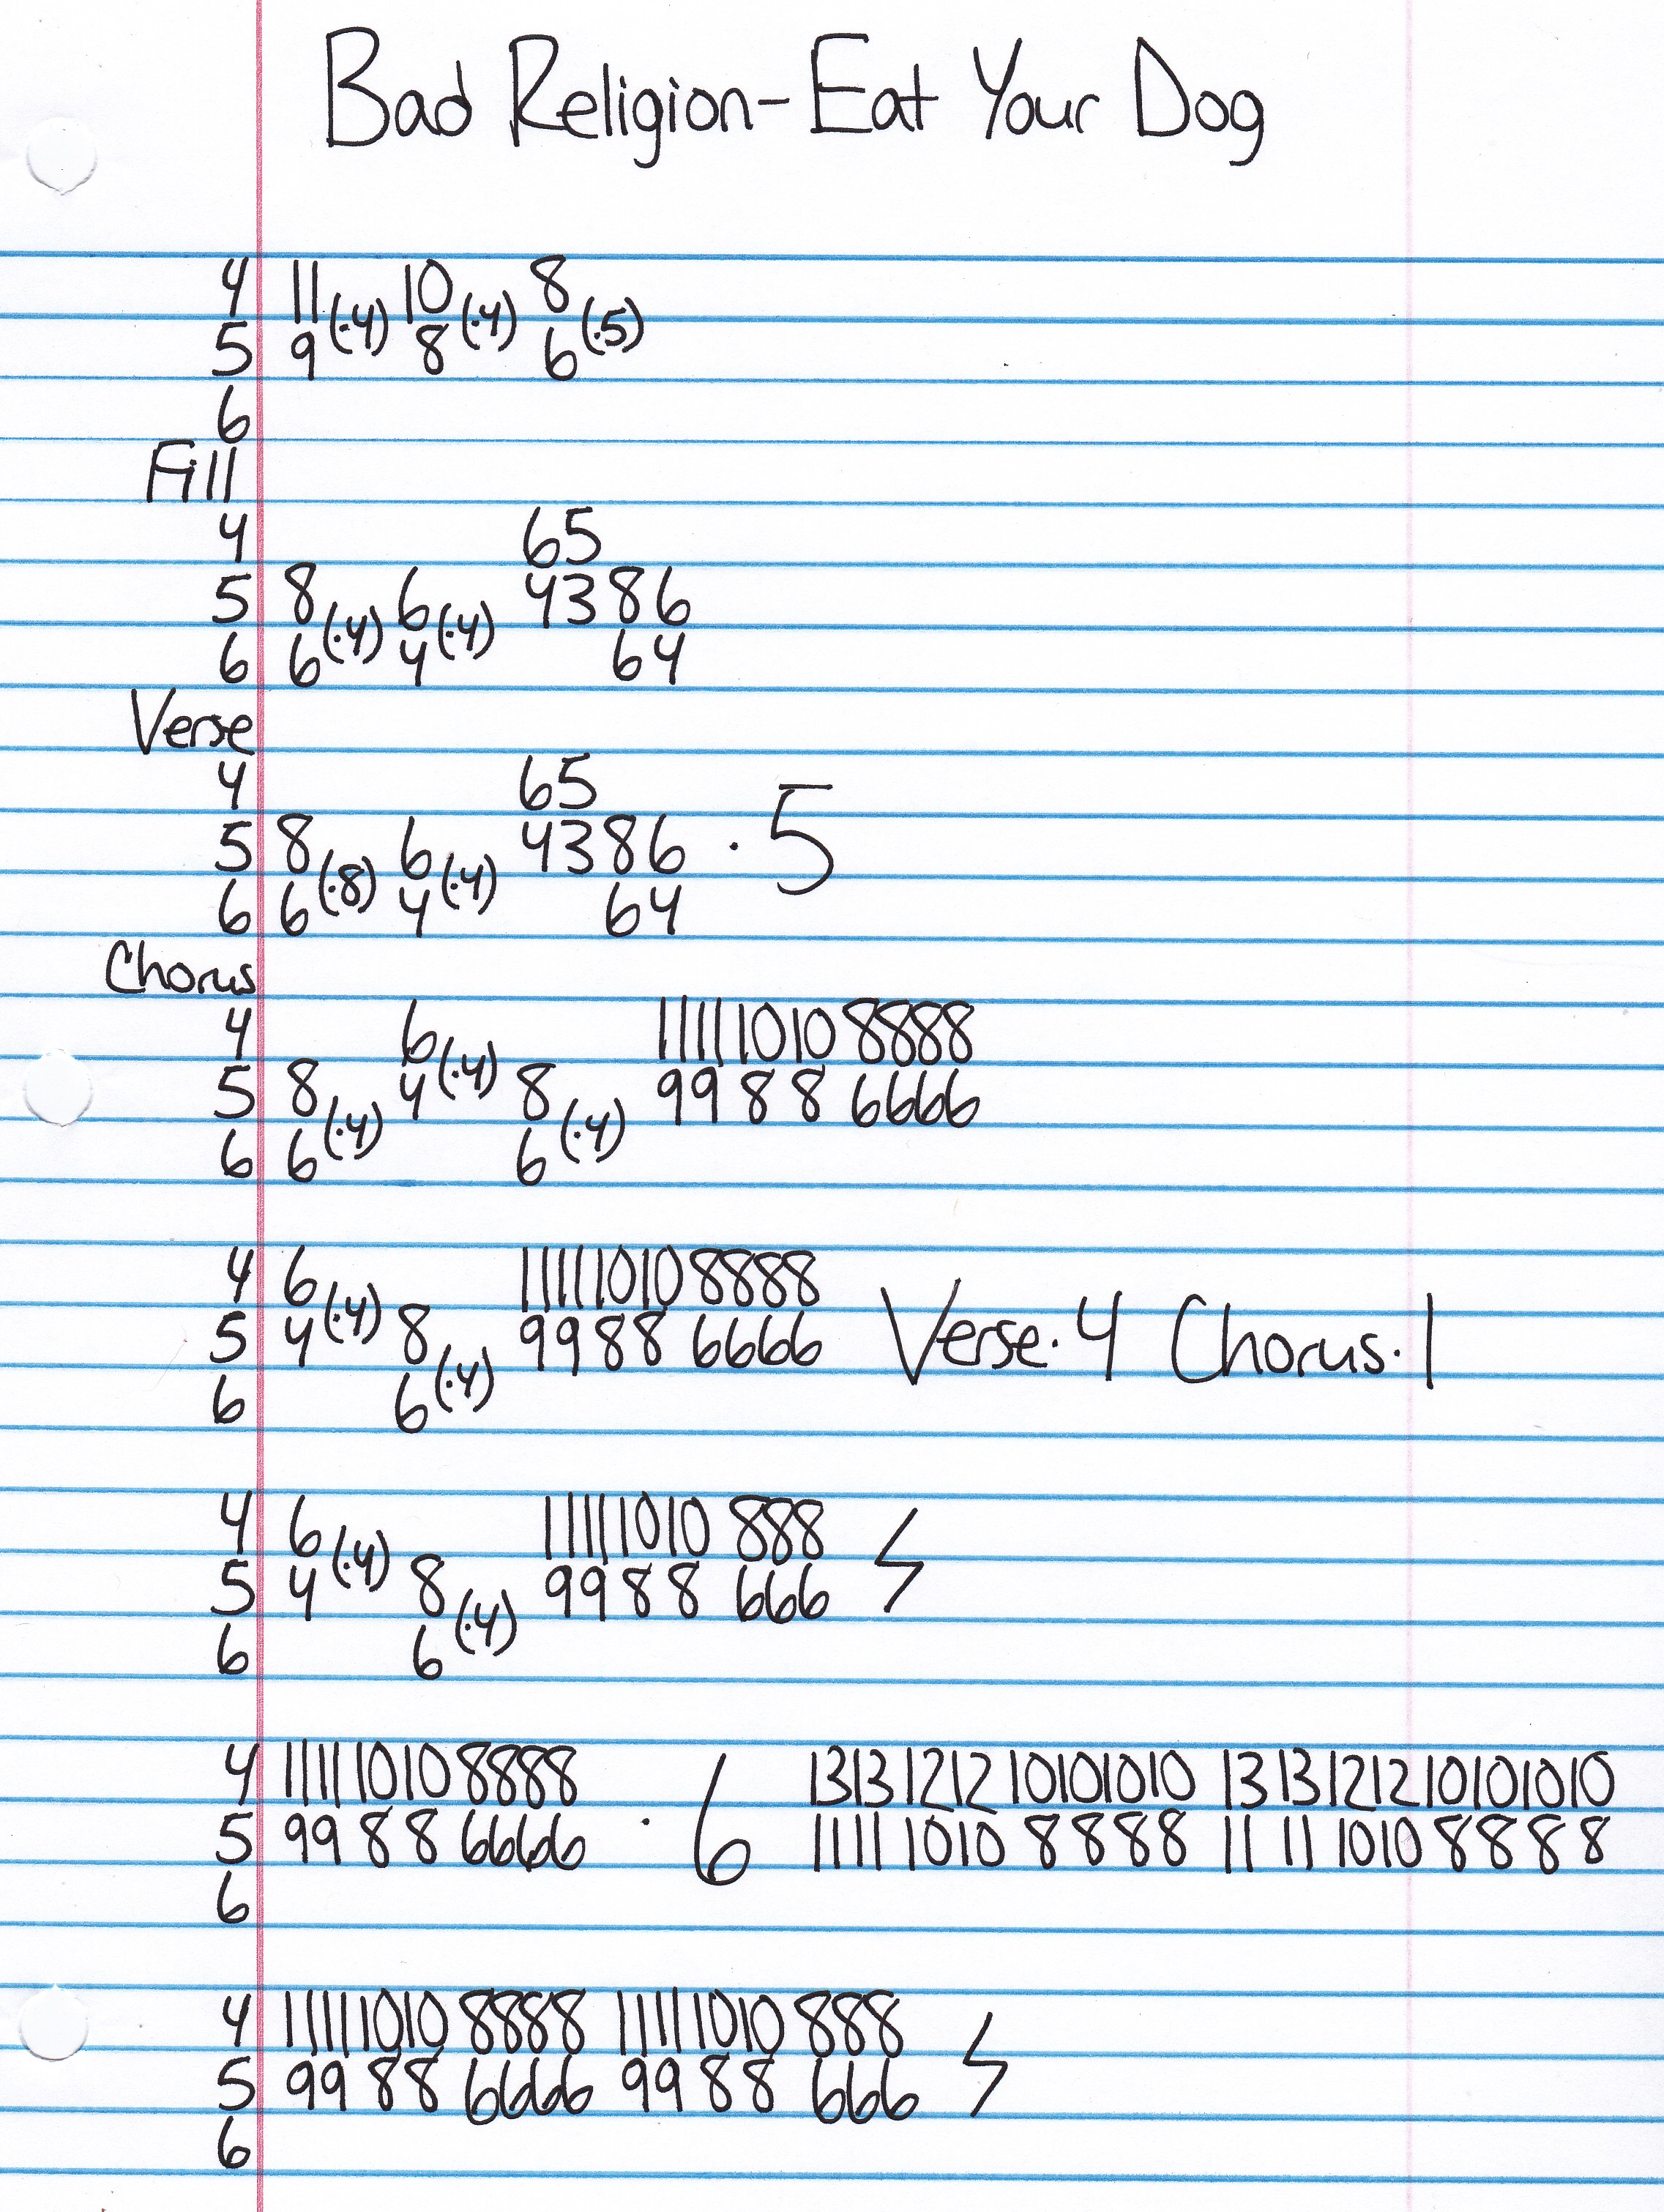 Bad Religion-Eat Your Dog
4 11(·4) 10(·4) 8(·5)
5 9 8 6
6
Fill
4 65
5 8(·4) 6(·4) 43 86
6 6 4 64
Verse
4 65
5 8(·8) 6(·4) 43 86 ·5
6 6 4 64
Chorus
4 6(·4) 11111010 8888
5 8(·4) 4 8(·4) 99 8 8 6666
6 6 6
4 6(·4) 11111010 8888
5 4 8(·4) 9988 6666 Verse·4 Chorus·1
6 6
4 6(·4) 11111010 888
5 4 8(·4) 9988 666
6 6
4 11111010 8888 ·6 1313 1212 10101010 1313 1212 10101010
5 99 88 6666 1111 1010 8888 11 11 1010 8888
6
4 11111010 8888 11111010 888
5 99 88 6666 99 88 666
6